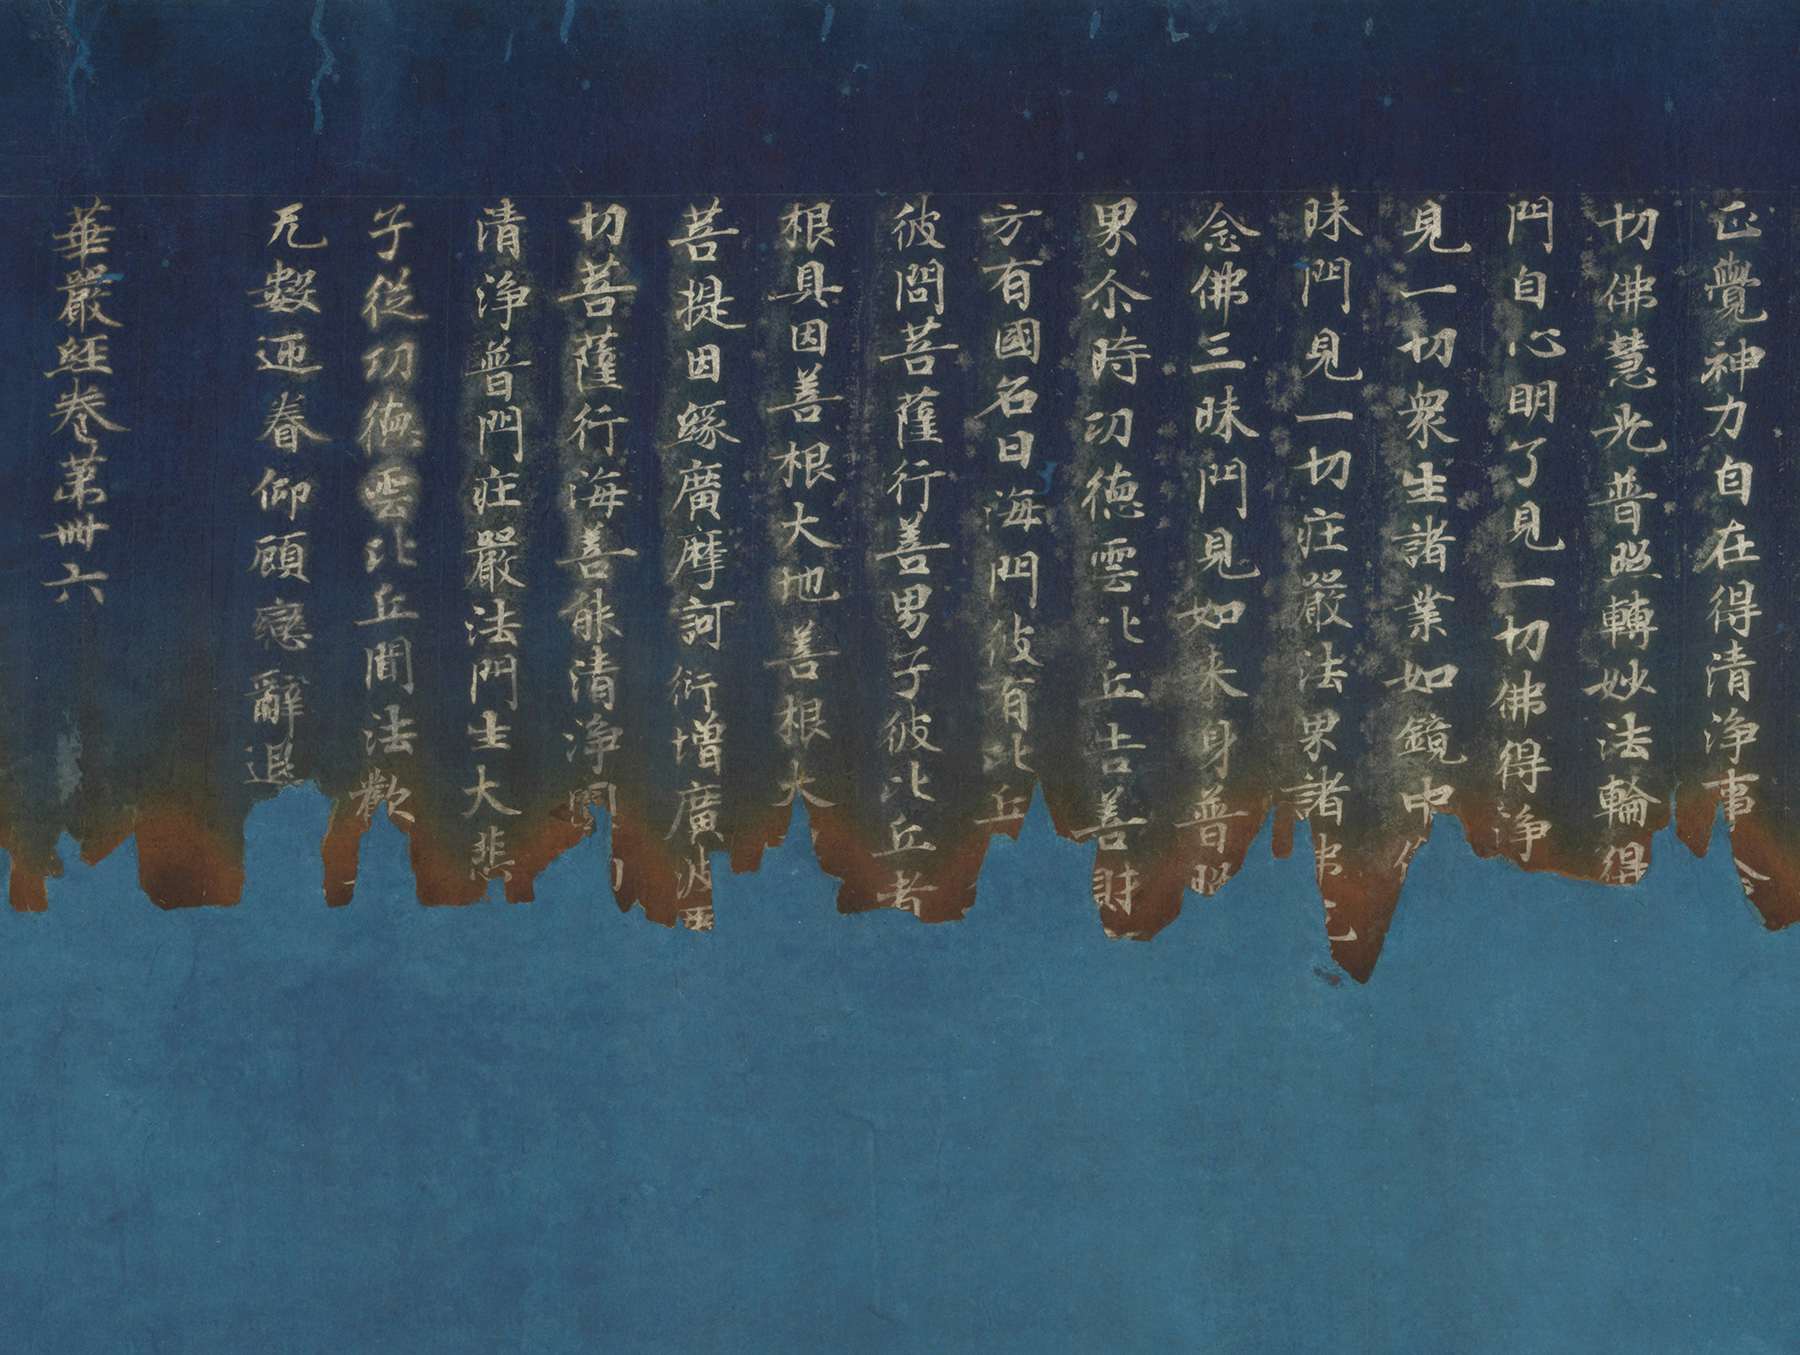 正覺神力自在得清淨事
切佛慧光普照轉妙法輪得
門自心明了見一切佛得淨
見一切衆生諸業如鏡中
昧門見一切莊嚴法界諸
念佛三昧門見如来身普照
界尒時功德雲比丘告善財
方有國名曰海門彼有比丘
彼問菩薩行善男子彼比丘者
根具因善根大地善根大
菩提因緣廣摩訶衍增廣波
切菩薩行海善能清淨
清淨普門莊嚴法門生大悲
子從功德雲比丘聞法歡
无數迊眷仰顧戀辭退
華嚴経巻第卌六